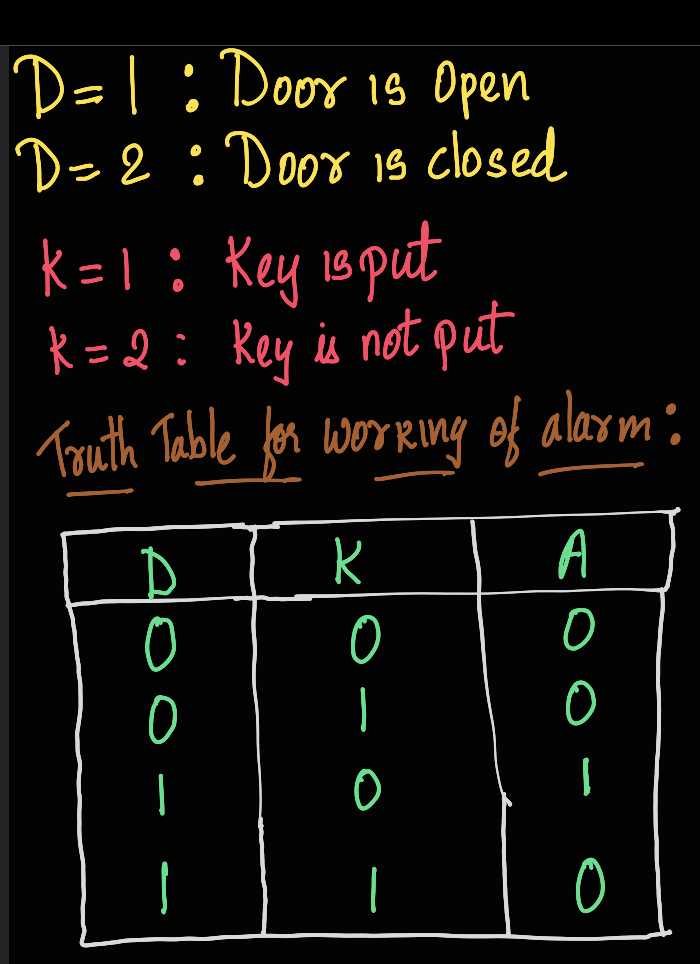 D = 1 : Door is Open
D = 2 : Door is closed
K = 1 : Key is put
K = 2 : Key is not put
Truth Table for working of alarm :
D K A
0 0 0
0 1 0
1 0 1
1 1 0